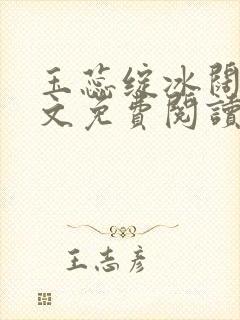 玉蕊绽冰阔
文免費閱讀
王志彦